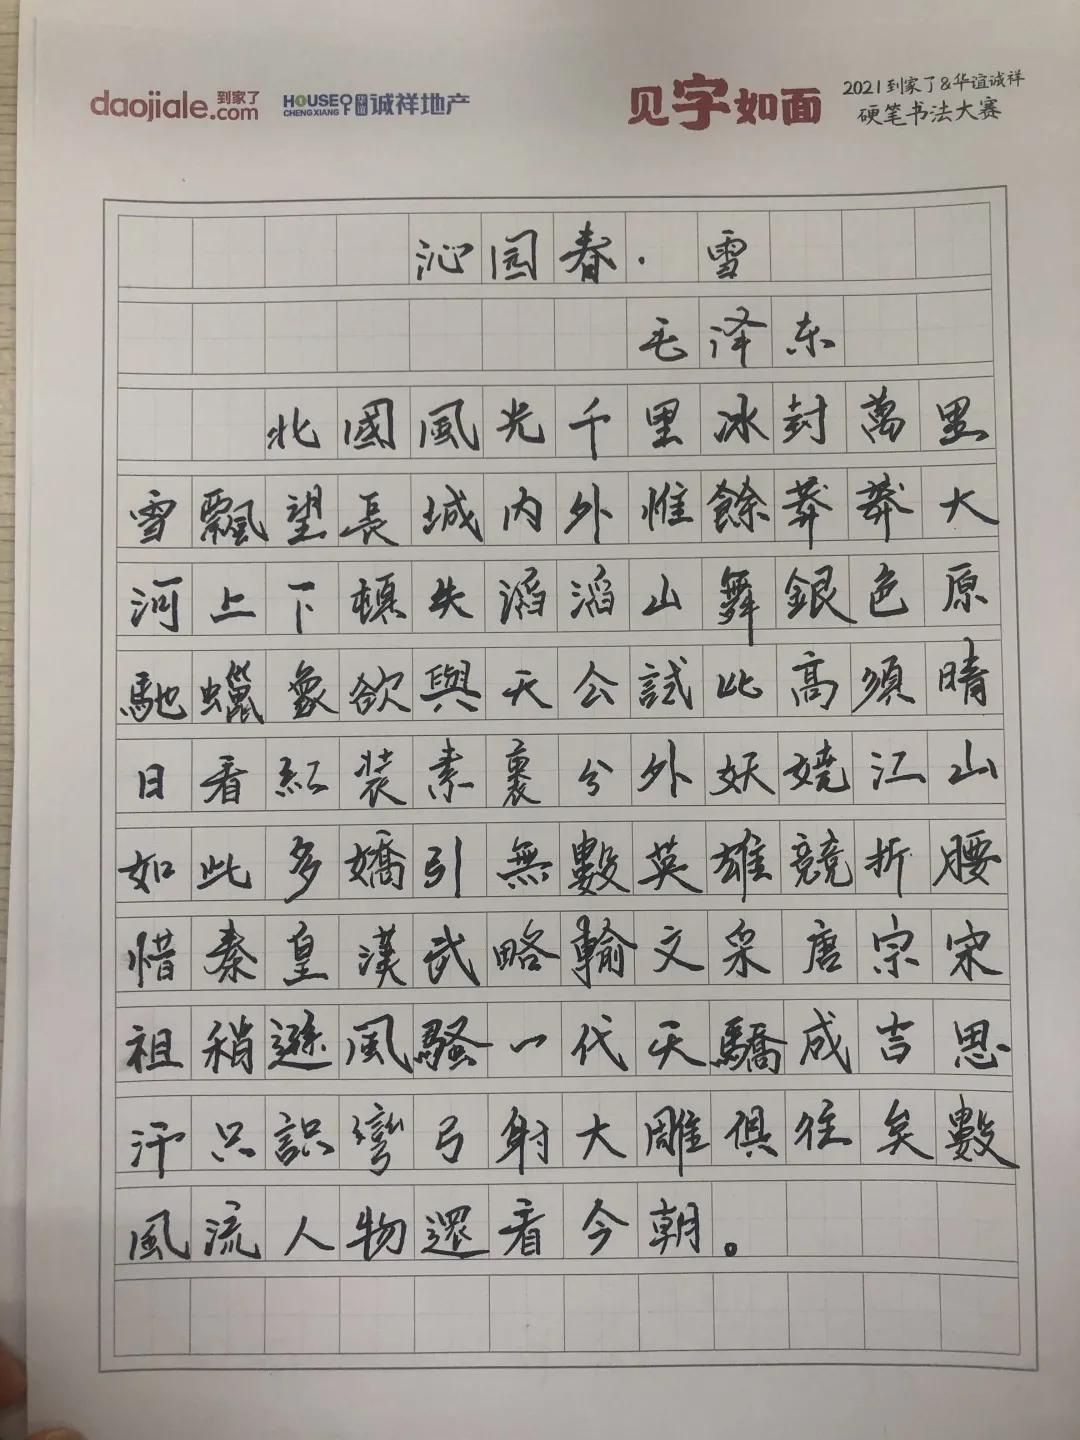 daojiale.com 到家了 HOUSE CHENGXIANG 华谊 诚祥地产 见字如面 2021到家了&华谊诚祥
硬笔书法大赛
沁园春·雪
毛泽东
北國風光千里冰封萬里
雪飄望長城内外惟餘莽莽大
河上下頓失滔滔山舞銀色原
馳蠟象欲與天公試比高須晴
日看紅装素裹分外妖嬈江山
如此多嬌引無數英雄競折腰
惜秦皇漢武略輸文采唐宗宋
祖稍遜風騷一代天驕成吉思
汗只識彎弓射大雕俱往矣數
風流人物還看今朝。